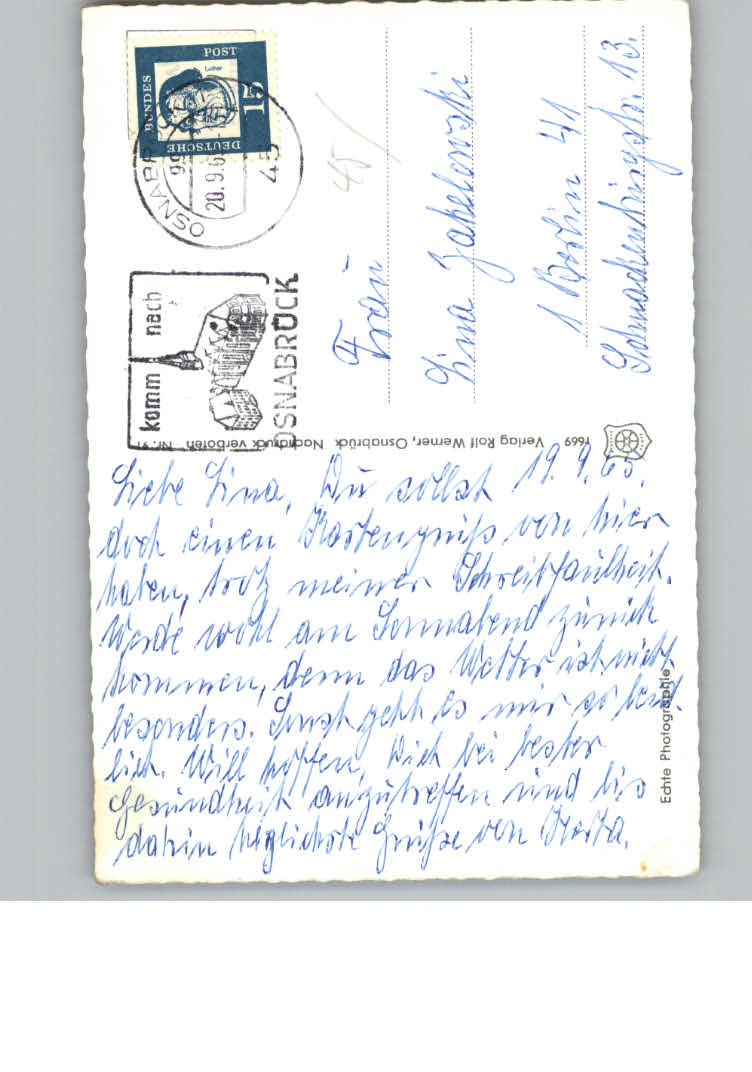 19.9.65.
Liebe Lina, Du sollst
doch einen Kartengruß von hier
haben, trotz meiner Schreibfaulheit.
Werde wohl am Sonnabend zurück
kommen, denn das Wetter ist nicht
besonders. Sonst geht es mir so
lich. Will hoffen, Dich bei bester
Gesundheit anzutreffen und bis
dahin herzlichste Grüße von
Frau
Lina
1 Berlin 41
Schnackenburgstr. 13.
45/
DEUTSCHE
BUNDES
POST
Luther
15
OSNABRÜCK
20.9.6
45
komm nach
OSNABRÜCK
Verlag Rolf Werner, Osnabrück Nachdruck verboten Nr. 91
1669
Echte Photographie